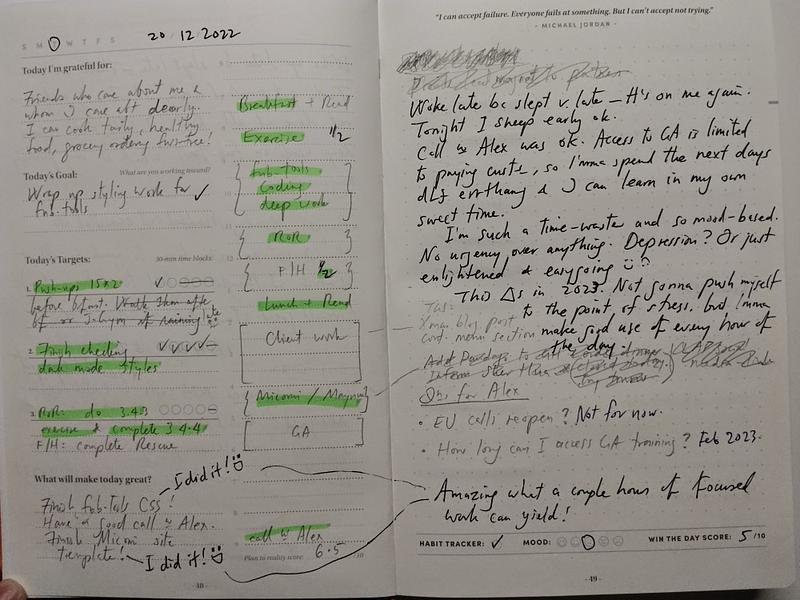 S M T W T F S 20 / 12 2022
Today I'm grateful for:
Friends who care about me &
whom I care abt dearly.
I can cook tasty, healthy
food, grocery ordering
Today's Goal: What are you working toward?
Wrap up styling work for ✓
fnb-tools
Today's Targets: 30-min time blocks:
1. Push-ups 15x2 ✓
before b'fast.
2. Finish checking ✓✓✓
dark mode styles
3. RoR: do 3.4.3
exercise & complete 3.4.4
F/H: complete Rescue
What will make today great?
I did it!
Finish fnb-tools CSS!
Have a good call w Alex.
Finish Miconi site
template! I did it!
Breakfast + Read
Exercise 1/2
fnb-tools
Coding
deep work
RoR
F/H 1/2
Lunch + Read
Client work
Miconi /
GA
call w Alex
Plan to reality score: 6.5 /10
- 48 -
"I can accept failure. Everyone fails at something. But I can't accept not trying."
- MICHAEL JORDAN -
Woke late bc slept v. late – It's on me again.
Tonight I sleep early ok.
Call w Alex was ok. Access to GA is limited
to paying custs, so I'mma spend the next days
& I can learn in my own
sweet time.
I'm such a time-waster and so mood-based.
No urgency over anything. Depression? Or just
enlightened & easygoing ?
This Δs in 2023. Not gonna push myself
to the point of stress, but Imma
make good use of every hour of
the day.
blog post
cont. menu section
Qns for Alex
• EU calls reopen? Not for now.
• How long can I access GA training? Feb 2023.
Amazing what a couple hours of focused
work can yield!
HABIT TRACKER: ✓ MOOD: WIN THE DAY SCORE: 5 /10
- 49 -